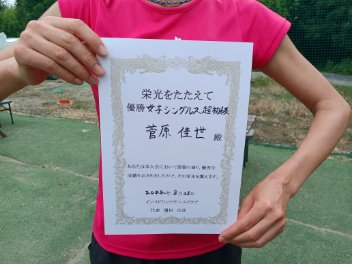 栄光をたたえて
優勝 女子シングルス 超初級
菅原 佳世 殿
あなたは本大会において頭書の通り、優秀な
成績をおさめましたので、その栄誉を讃えます。
インスピリッツテニスクラブ
代表